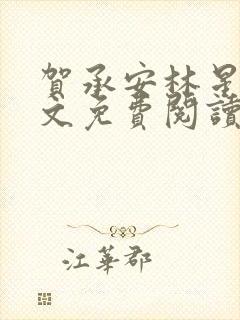 賀承安林星
文免費閱讀
江華郡